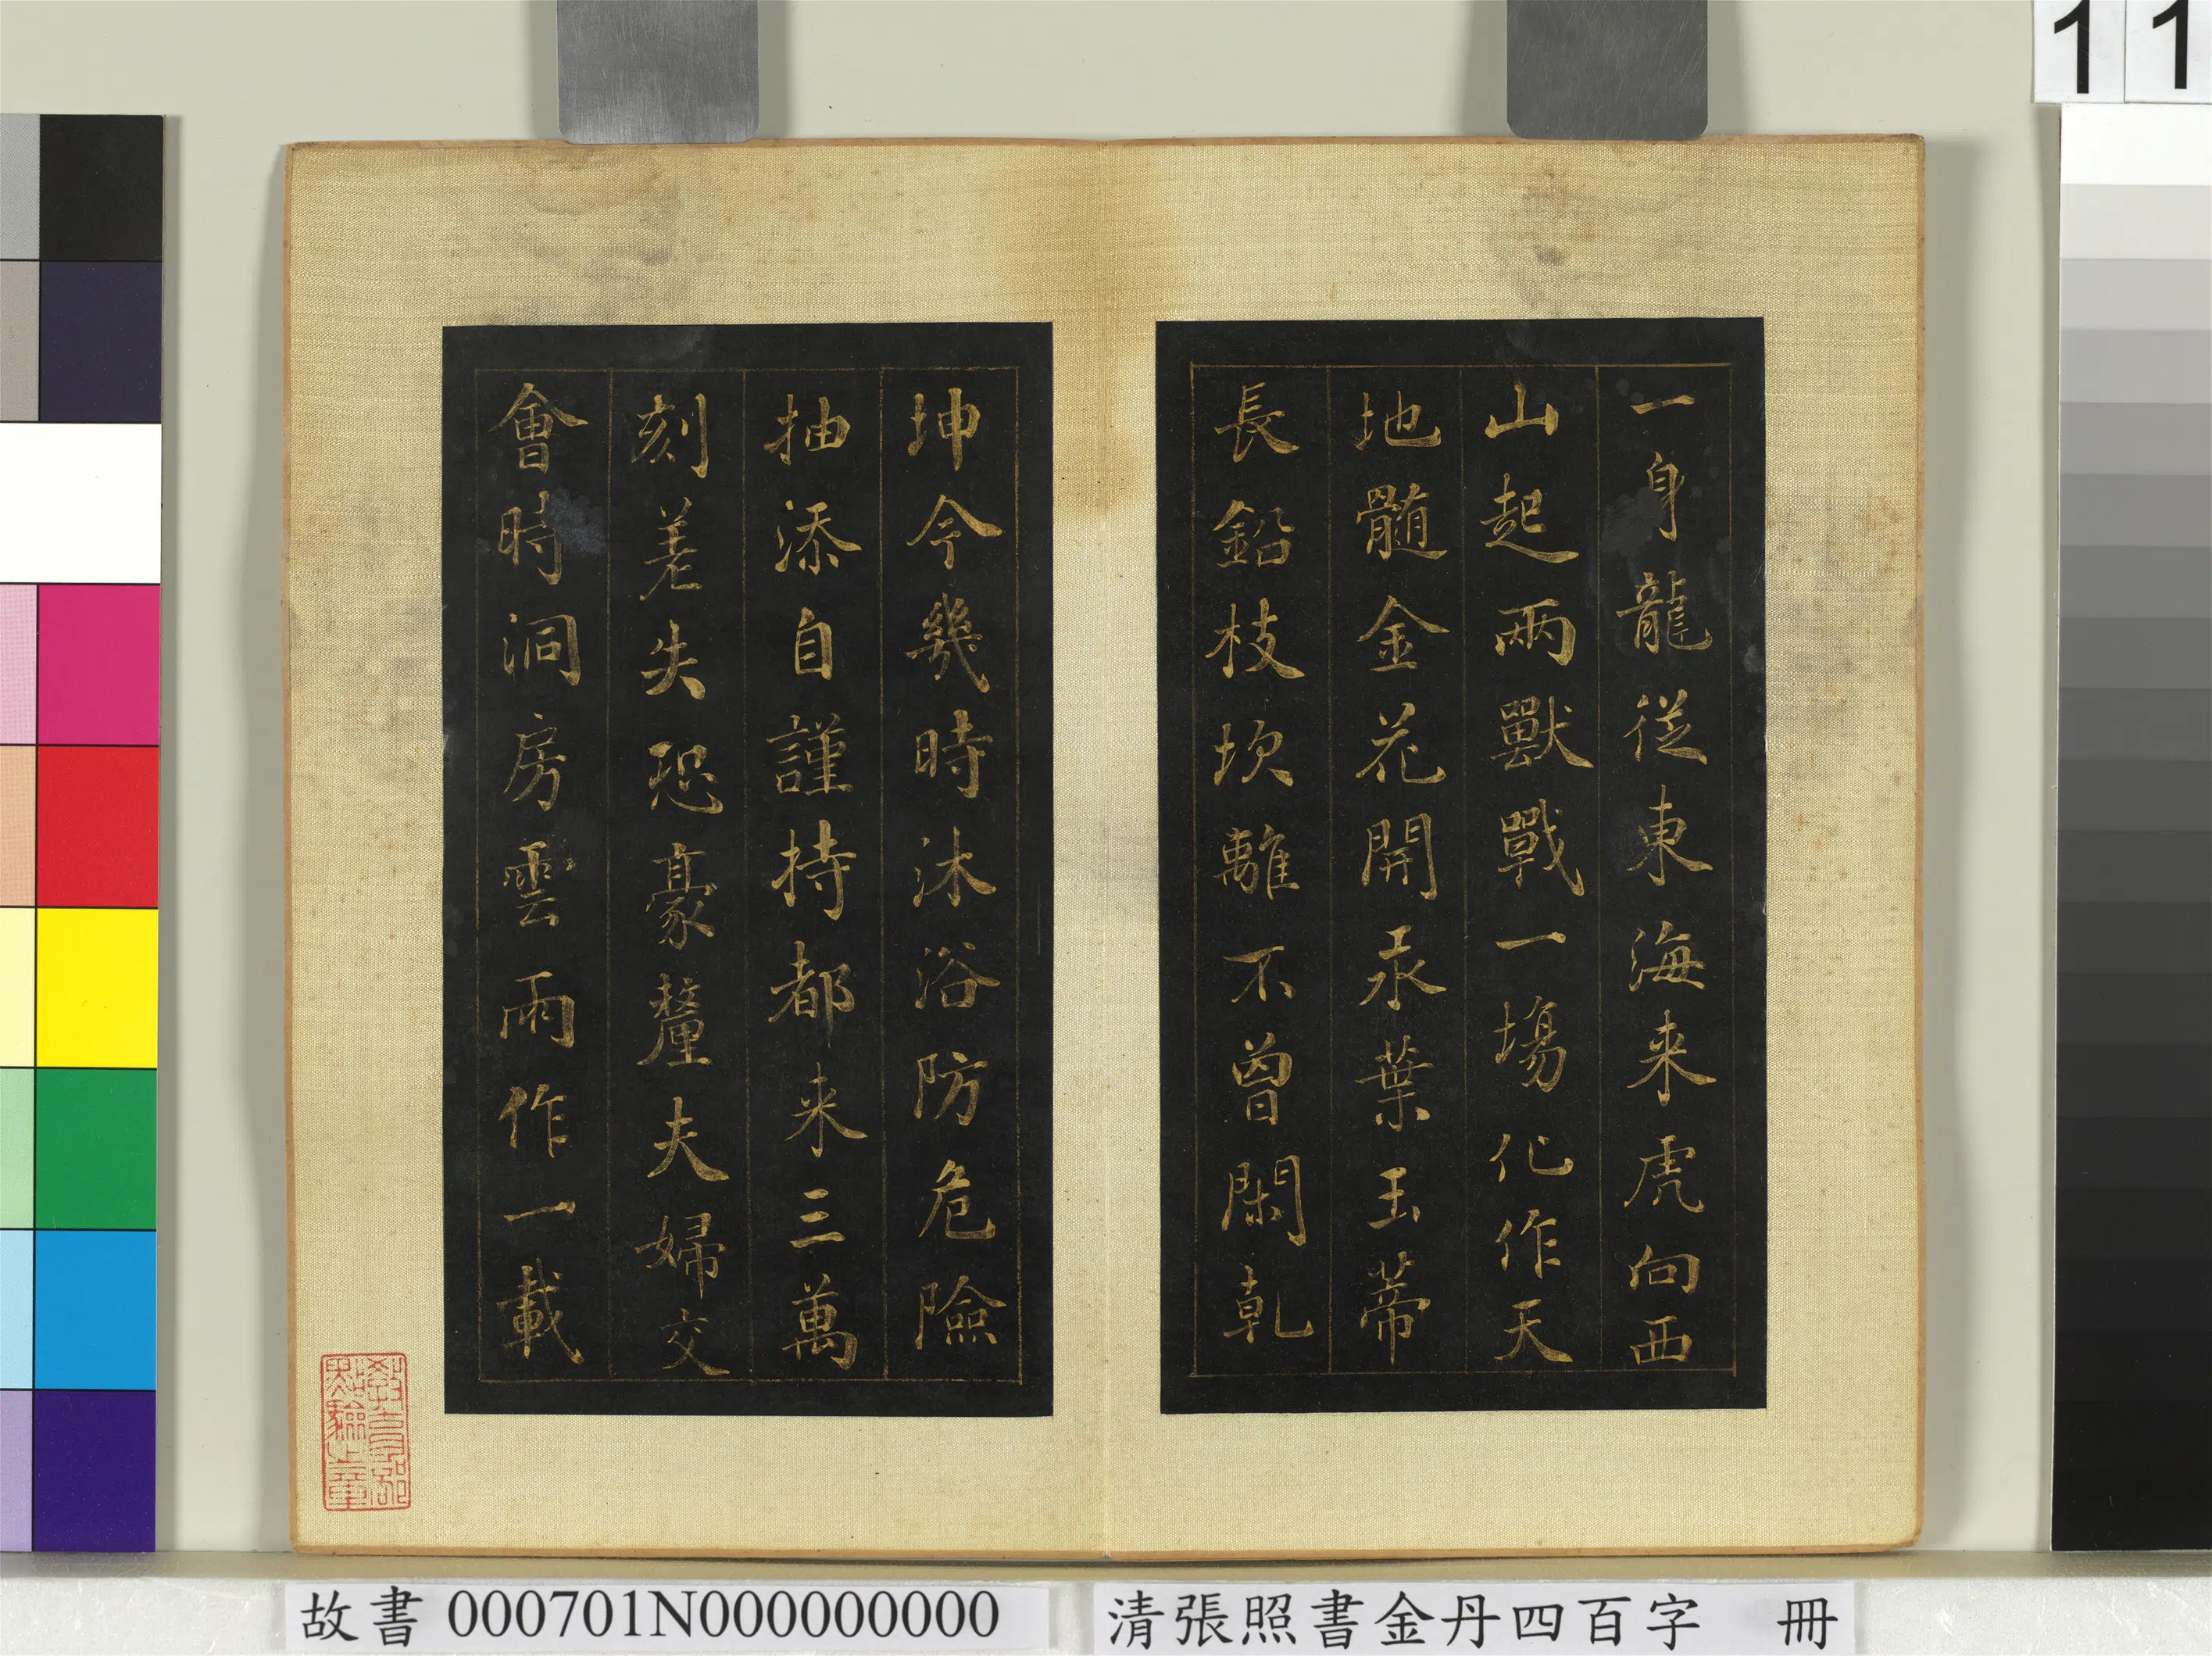 11
一身龍從東海来虎向西
山起兩獸戰一場化作天
地髓金花開汞葉玉蒂
長鉛枝坎離不曾閑乾
坤今幾時沐浴防危險
抽添自謹持都来三萬
刻差失恐豪釐夫婦交
會時洞房雲雨作一載
教育部
點驗之章
故書 000701N000000000
清張照書金丹四百字 冊